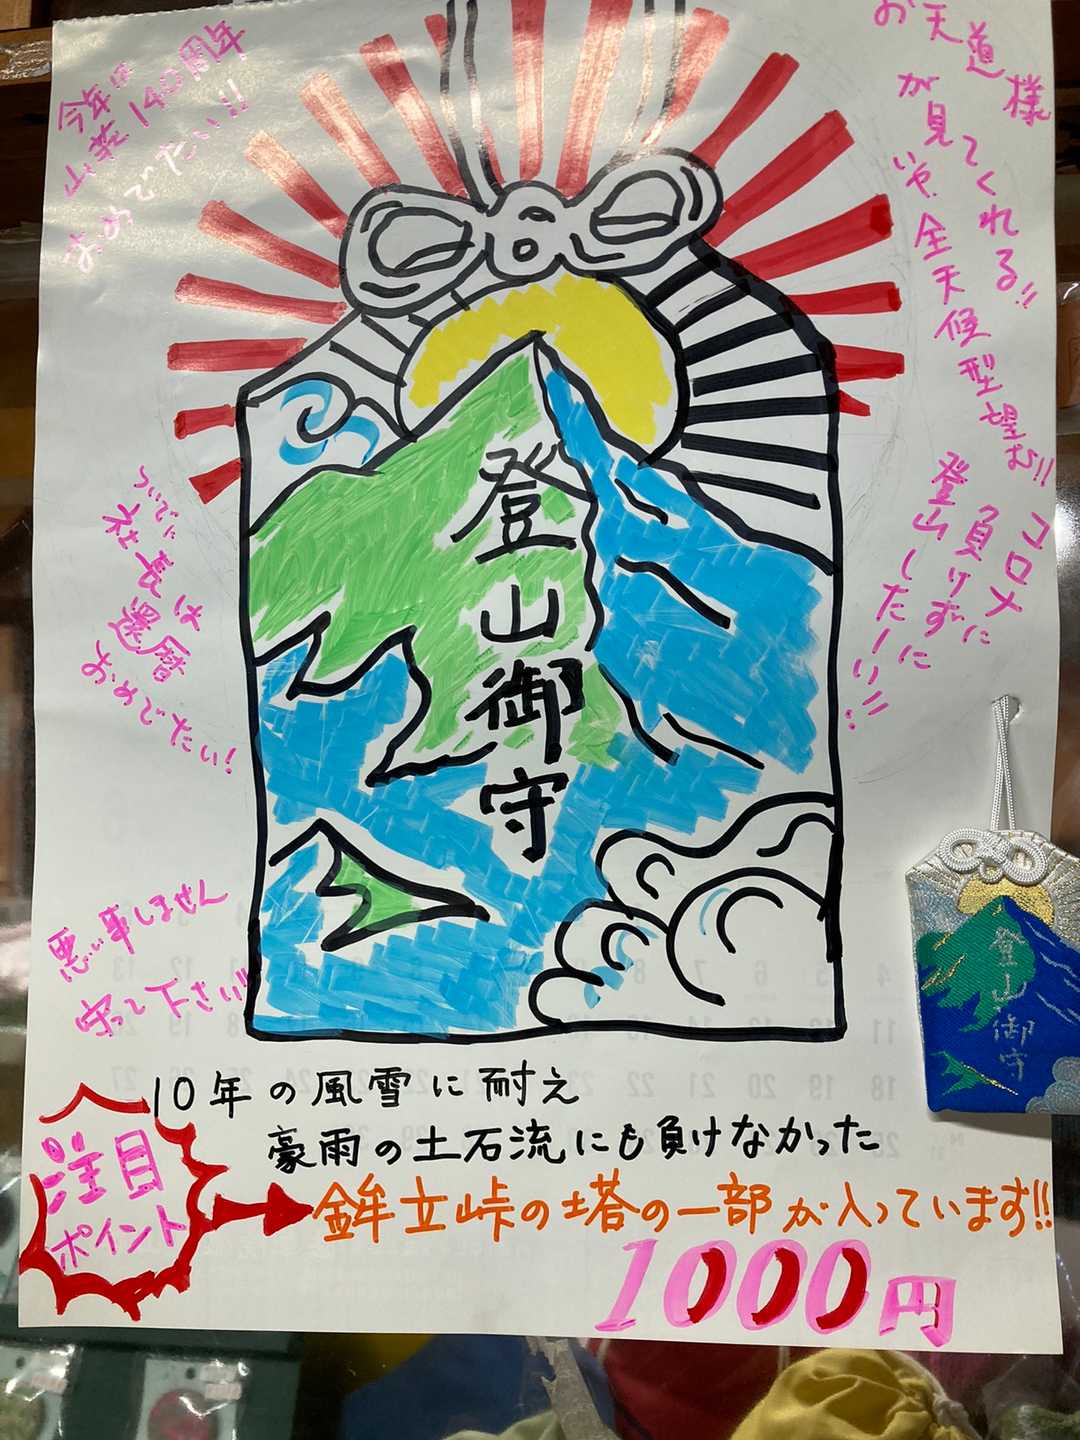 今年は
山荘140周年
おめでたい!!
お天道様
が見てくれる!!
いや、全天候型望む!!
コロナに
負けずに
登山したーい!!
ついでに
社長は
還暦
おめでたい!
登山御守
悪い事しません
守って下さい!!
登山御守
10年の風雪に耐え
豪雨の土石流にも負けなかった
注目
ポイント
鉾立峠の塔の一部が入っています!!
1000円